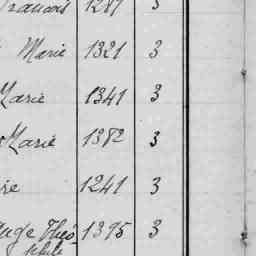 François 1287 3
Marie 1321 3
Marie 1341 3
Marie 1382 3
1241 3
Théo- 1395 3
phile